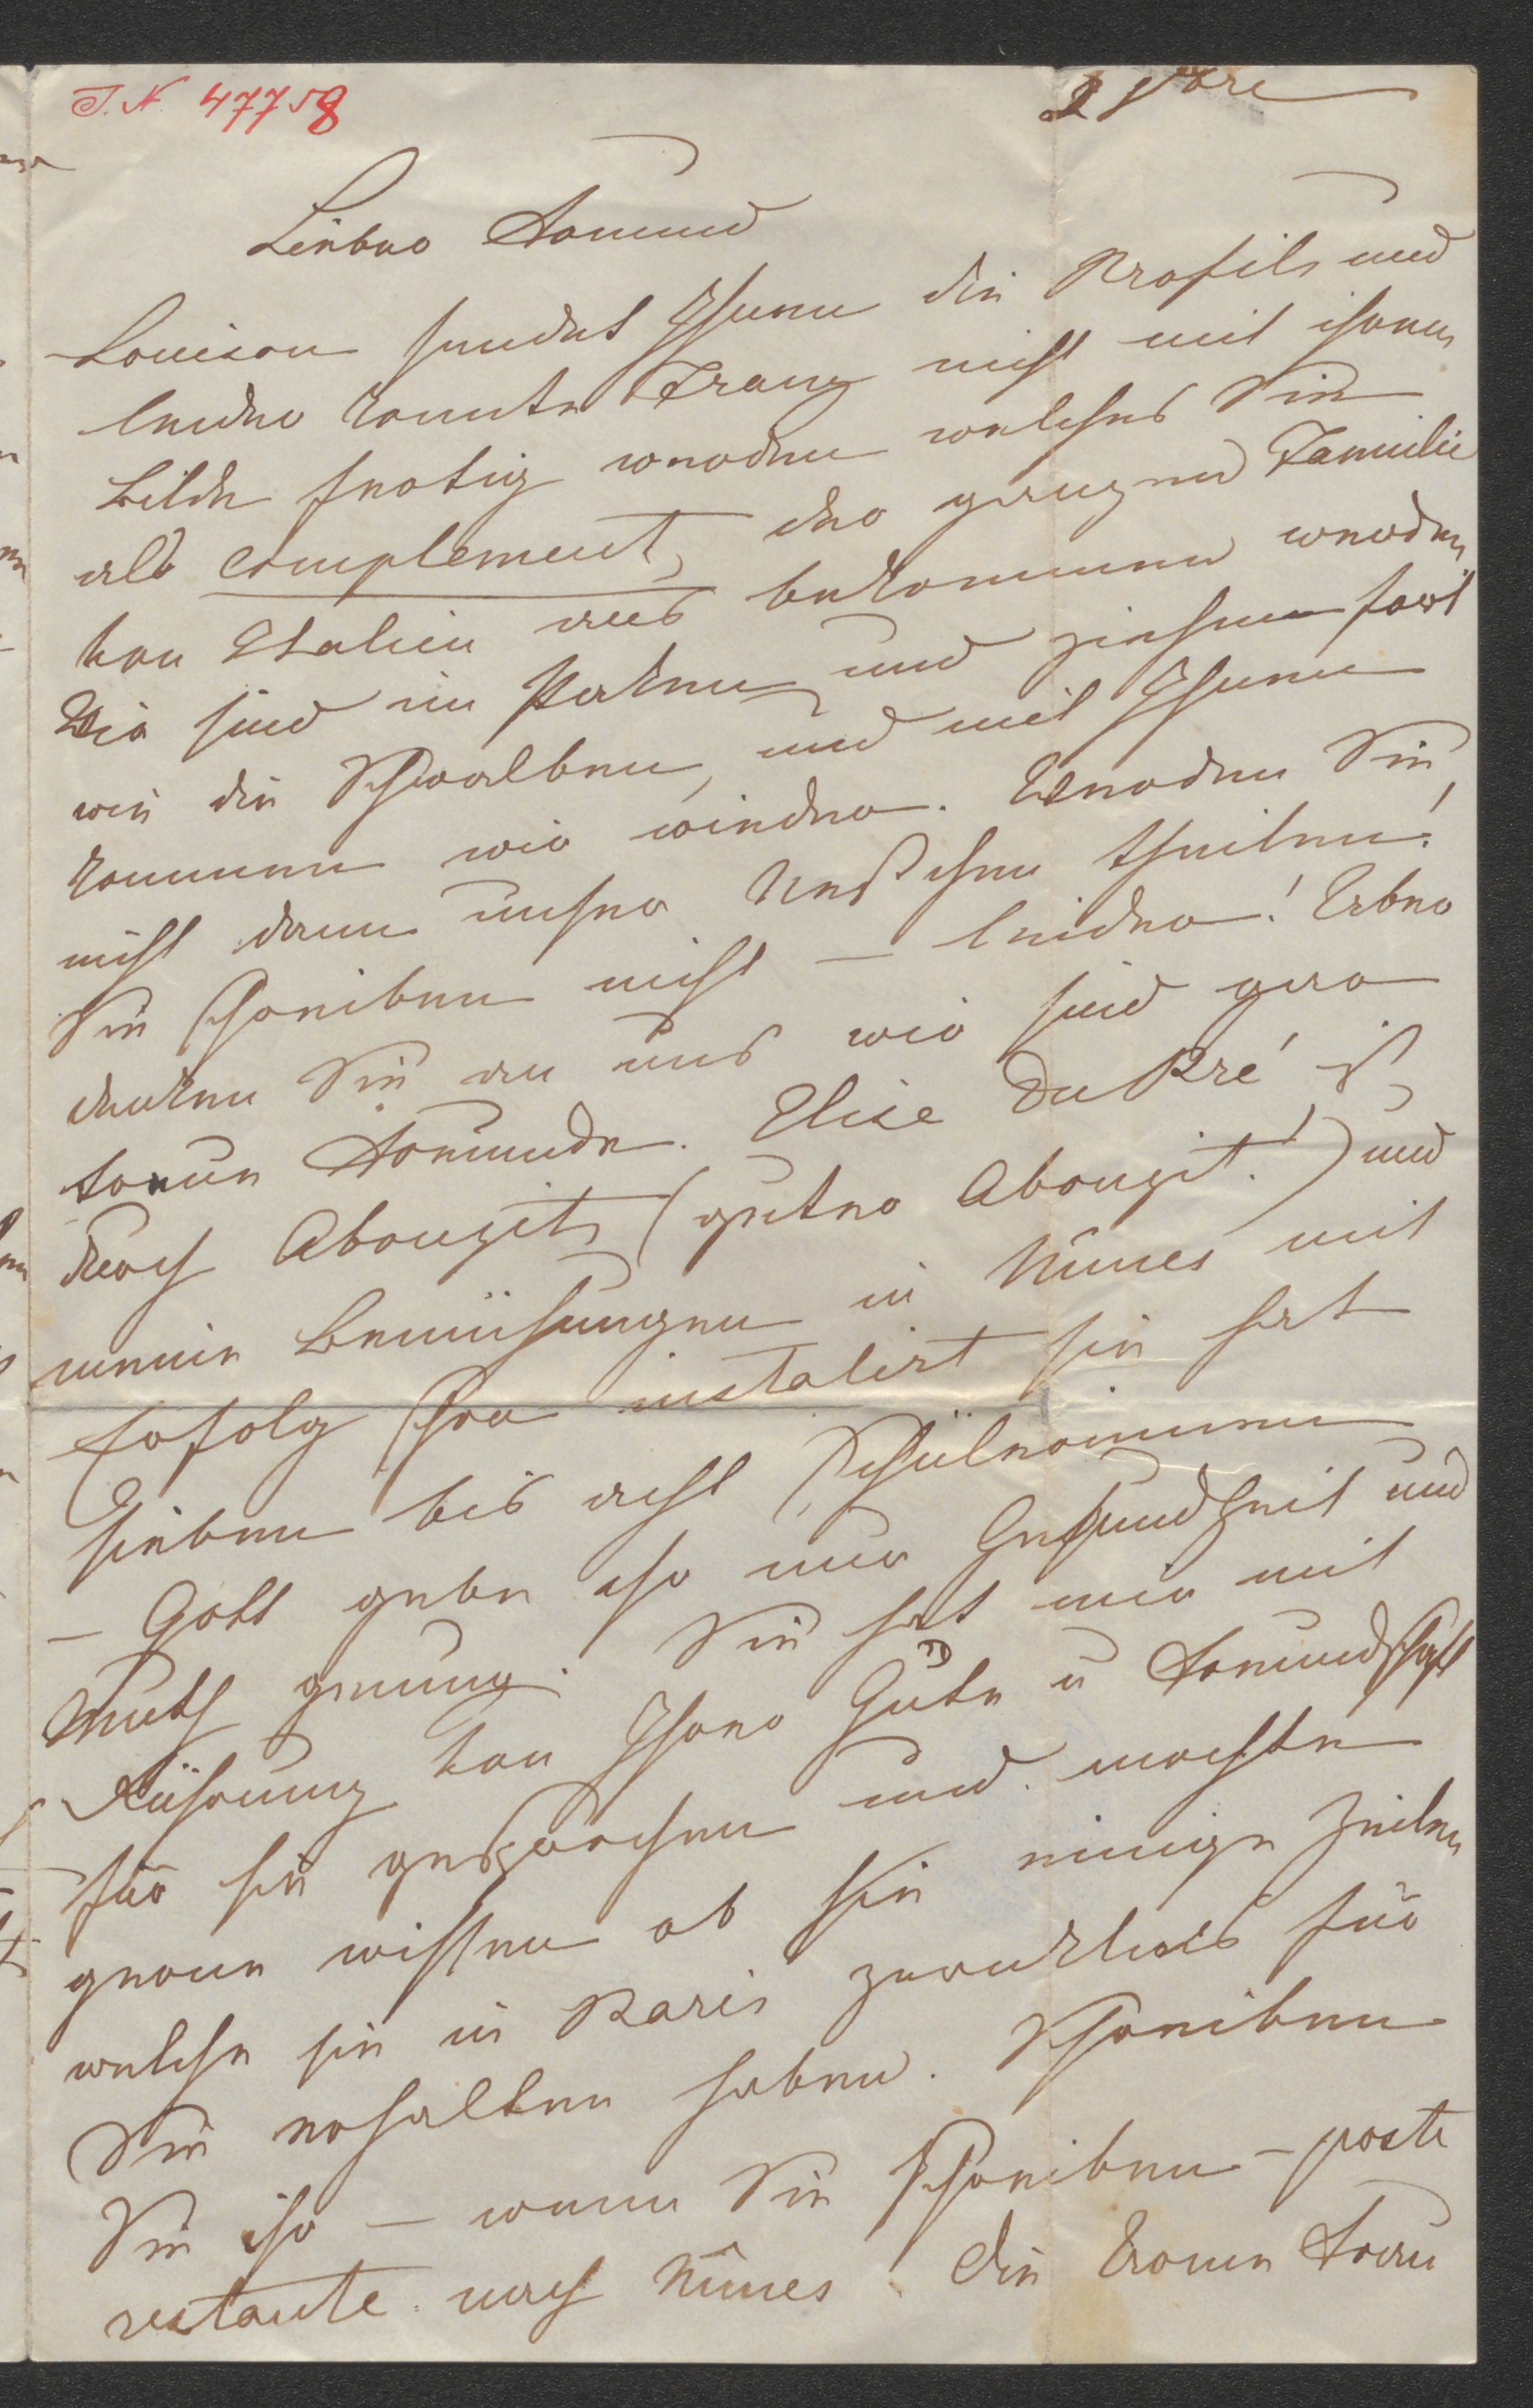 I. N. 47758
2 9bre
Lieber Freund
Louison sendet Ihnen die Profils und
leider konnte Franz nicht mit ihrem
Bilde fertig werden welches Sie
als complement, der ganzen Familie
von Italien aus bekommen werden
Wir sind im Packen und ziehen fort
wie die Schwalben, und mit Ihnen
kommen wir wieder. Werden Sie
nicht dann unser Nestchen theilen!
Sie schreiben nicht – leider! Aber
denken Sie an uns wir sind gar
treue Freunde. Elise Du Pré ist
durch Abouzit (guter Abouzit!) und
meine Bemühungen in Nimes mit
Erfolg schon installirt sie hat
sieben bis acht Schülerinnen
– Gott gebe ihr nur Gesundheit und
Muth genung. Sie hat mir mit
Rührung von Ihrer Güte u Freundschaft
für sie gesprochen und möchte
gerne wissen ob Sie einige Zeilen
welche sie in Paris zurückließ für
Sie erhalten haben. Schreiben
Sie ihr – wenn Sie schreiben – poste
restante nach Nimes. Die brave Frau